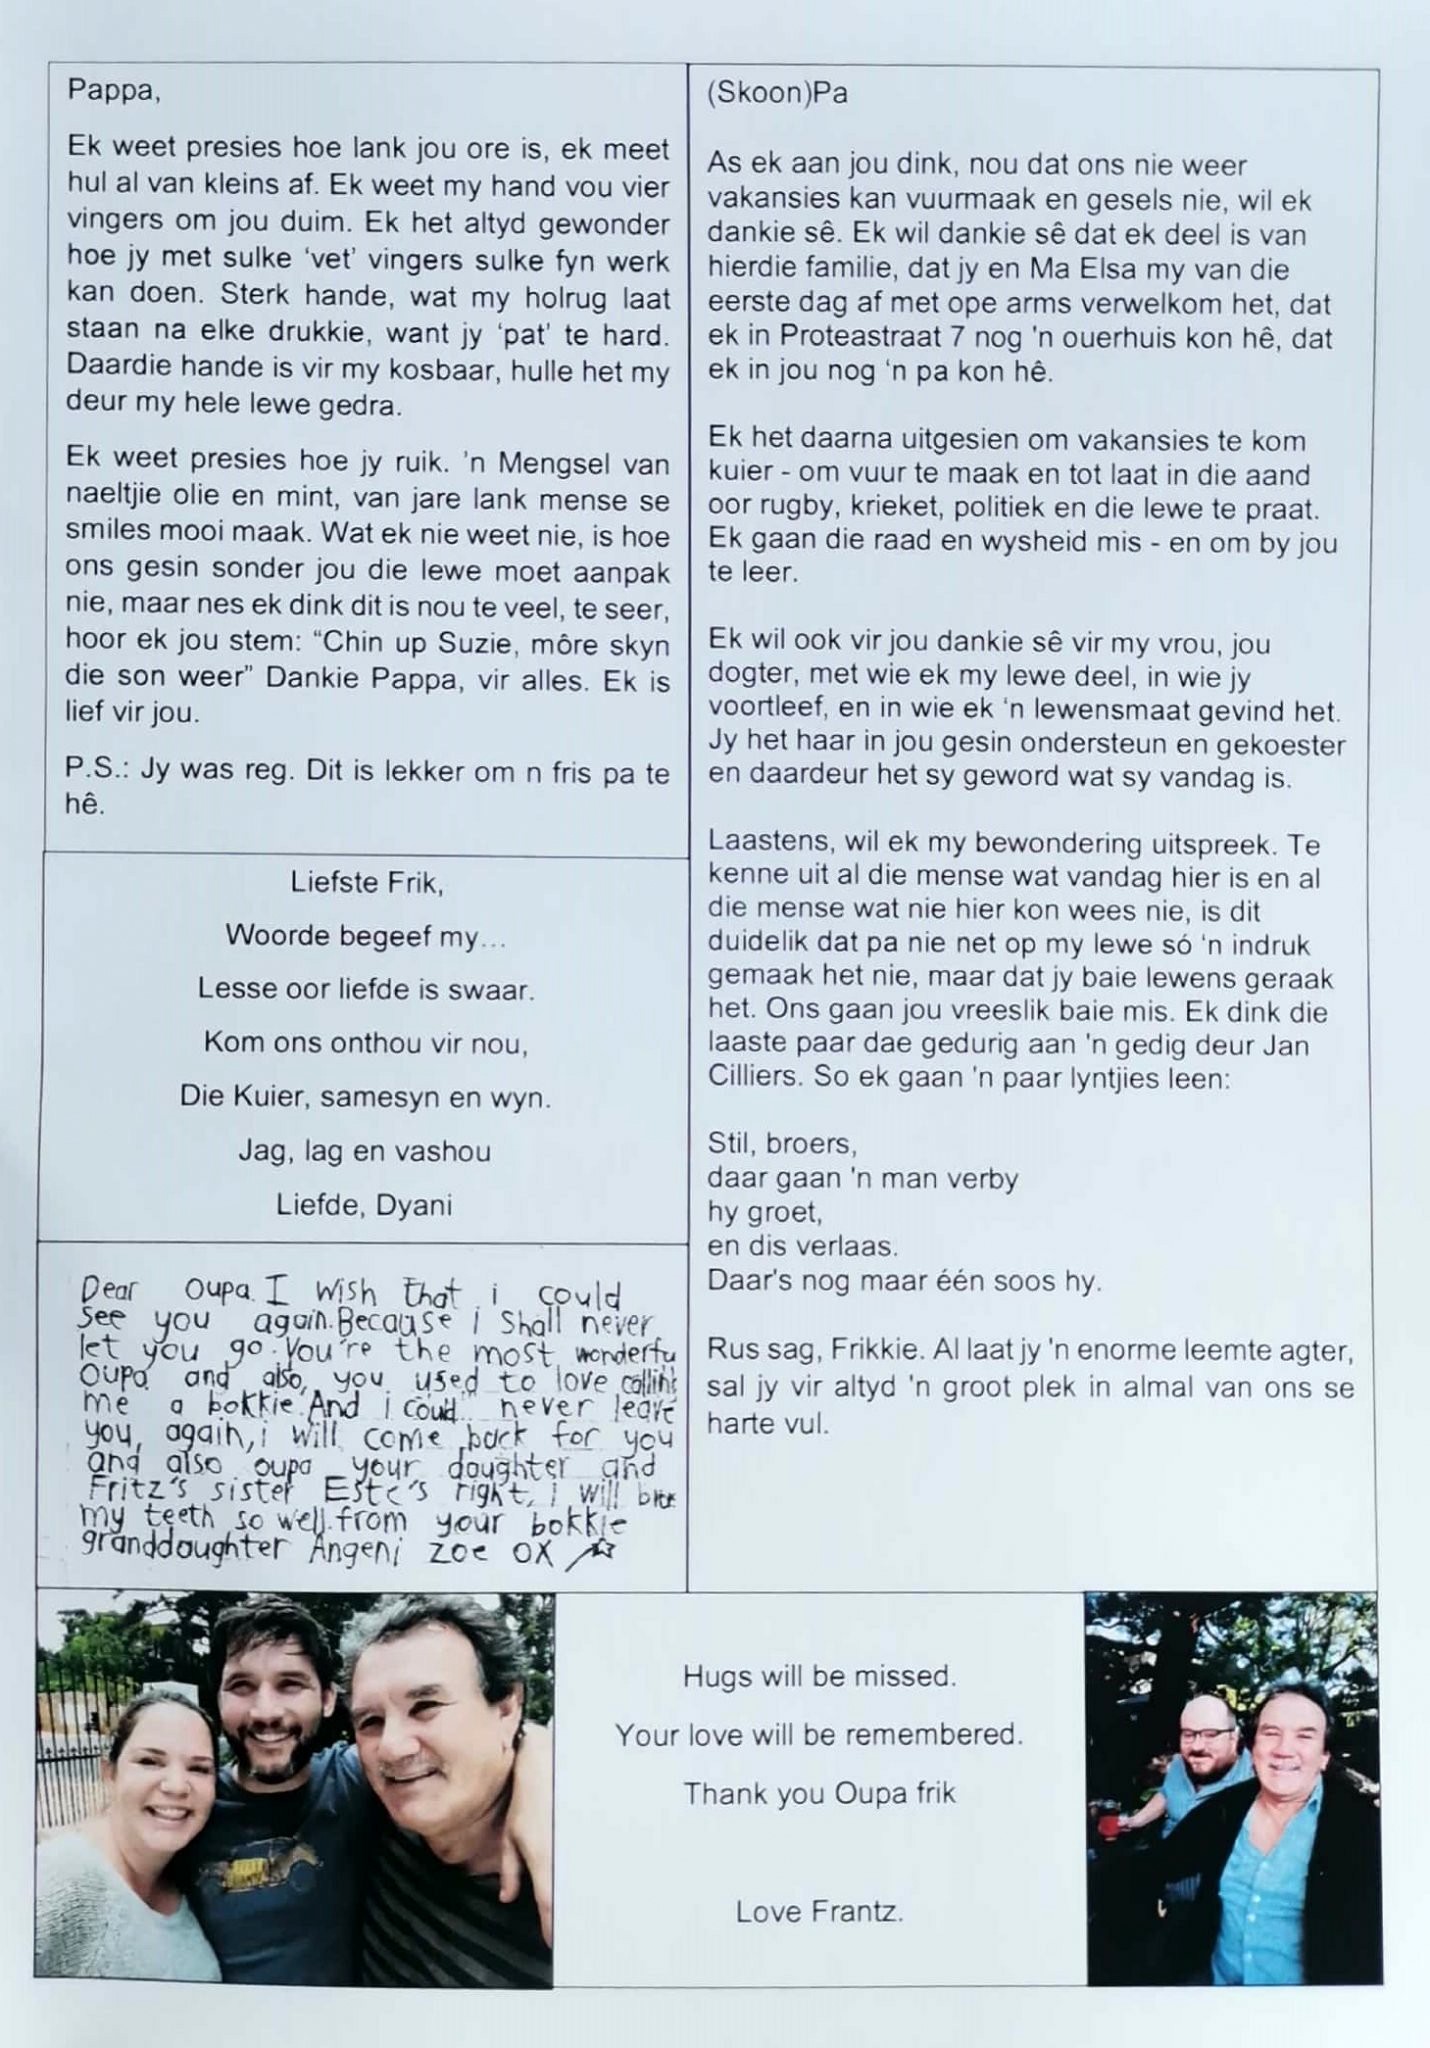 Pappa,
Ek weet presies hoe lank jou ore is, ek meet
hul al van kleins af. Ek weet my hand vou vier
vingers om jou duim. Ek het altyd gewonder
hoe jy met sulke ‘vet’ vingers sulke fyn werk
kan doen. Sterk hande, wat my holrug laat
staan na elke drukkie, want jy ‘pat’ te hard.
Daardie hande is vir my kosbaar, hulle het my
deur my hele lewe gedra.
Ek weet presies hoe jy ruik. 'n Mengsel van
naeltjie olie en mint, van jare lank mense se
smiles mooi maak. Wat ek nie weet nie, is hoe
ons gesin sonder jou die lewe moet aanpak
nie, maar nes ek dink dit is nou te veel, te seer,
hoor ek jou stem: “Chin up Suzie, môre skyn
die son weer” Dankie Pappa, vir alles. Ek is
lief vir jou.
P.S.: Jy was reg. Dit is lekker om n fris pa te
hê.
Liefste Frik,
Woorde begeef my...
Lesse oor liefde is swaar.
Kom ons onthou vir nou,
Die Kuier, samesyn en wyn.
Jag, lag en vashou
Liefde, Dyani
Dear Oupa. I wish that i could
see you again. Because i shall never
let you go. You're the most wonderfu
Oupa and also, you used to love calling
me a bokkie. And i could never leave
you, again, i will come back for you
and also oupa your daughter and
Fritz's sister Este's right, i will
my teeth so well. from your bokkie
granddaughter Angeni zoe ox
(Skoon)Pa
As ek aan jou dink, nou dat ons nie weer
vakansies kan vuurmaak en gesels nie, wil ek
dankie sê. Ek wil dankie sê dat ek deel is van
hierdie familie, dat jy en Ma Elsa my van die
eerste dag af met ope arms verwelkom het, dat
ek in Proteastraat 7 nog 'n ouerhuis kon hê, dat
ek in jou nog ‘n pa kon hê.
Ek het daarna uitgesien om vakansies te kom
kuier - om vuur te maak en tot laat in die aand
oor rugby, krieket, politiek en die lewe te praat.
Ek gaan die raad en wysheid mis - en om by jou
te leer.
Ek wil ook vir jou dankie sê vir my vrou, jou
dogter, met wie ek my lewe deel, in wie jy
voortleef, en in wie ek ‘n lewensmaat gevind het.
Jy het haar in jou gesin ondersteun en gekoester
en daardeur het sy geword wat sy vandag is.
Laastens, wil ek my bewondering uitspreek. Te
kenne uit al die mense wat vandag hier is en al
die mense wat nie hier kon wees nie, is dit
duidelik dat pa nie net op my lewe só ‘n indruk
gemaak het nie, maar dat jy baie lewens geraak
het. Ons gaan jou vreeslik baie mis. Ek dink die
laaste paar dae gedurig aan 'n gedig deur Jan
Cilliers. So ek gaan 'n paar lyntjies leen:
Stil, broers,
daar gaan 'n man verby
hy groet,
en dis verlaas.
Daar's nog maar één soos hy.
Rus sag, Frikkie. Al laat jy 'n enorme leemte agter,
sal jy vir altyd 'n groot plek in almal van ons se
harte vul.
Hugs will be missed.
Your love will be remembered.
Thank you Oupa frik
Love Frantz.